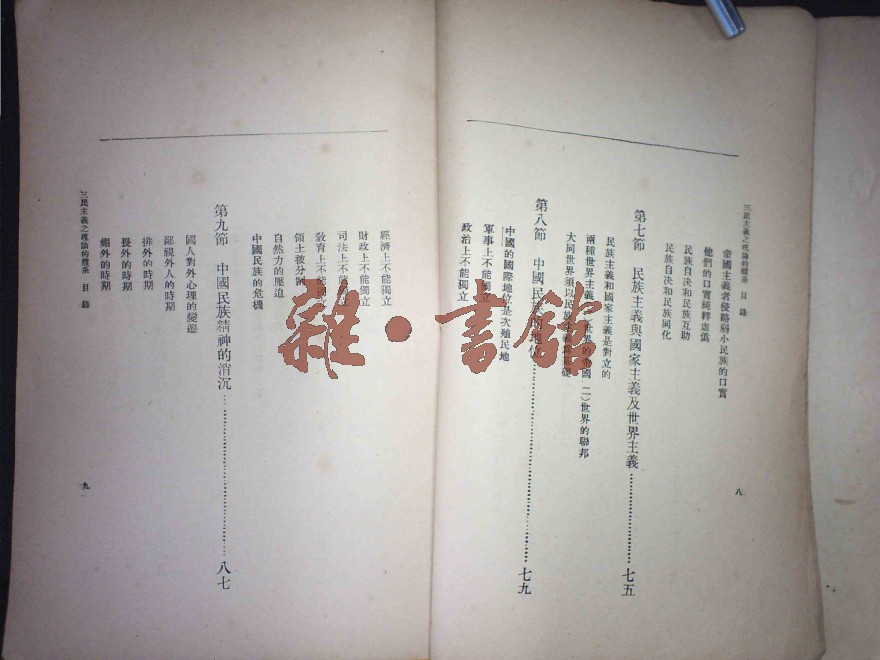 三民主義之理論的體系 目錄
八
帝國主義者侵略弱小民族的口實
他們的口實純釋虛僞
民族自決和民族互助
民族自決和民族同化
第七節 民族主義與國家主義及世界主義 七五
民族主義和國家主義是對立的
兩種世界主義 世界的帝國 二)世界的聯邦
大同世界須以民族主義爲基礎
第八節 中國民族的地位 七九
中國的國際地位是次殖民地
軍事上不能獨立
政治上不能獨立
經濟上不能獨立
財政上不能獨立
司法上不能獨立
教育上不能獨立
領土被分割
自然力的壓迫
中國民族的危機
第九節 中國民族精神的消沉 八七
國人對外心理的變遷
鄙視外人的時期
排外的時期
畏外的時期
媚外的時期
三民主義之理論的體系 目錄
九
雜·書館